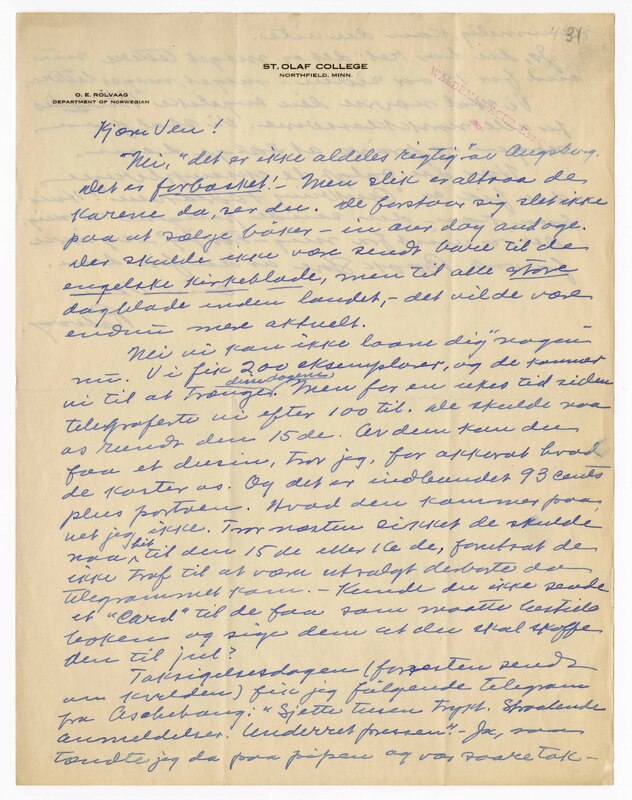 31
ST. OLAF COLLEGE
NORTHFIELD, MINN.
O. E. ROLVAAG
DEPARTMENT OF NORWEGIAN
Kjære Ven!
"Nei," det er ikke aldeles rigtig" av Augsburg.
Det er forbasket! - Men slik er altsaa de
karene da, ser du. De forstaar sig slet ikke
paa at sælge bøker - in our day and age.
Der skulde ikke være sendt bare til de
engelske kirkeblade, men til alle store
dagblade inden landet, - det vilde være
endnu mere aktuelt.
Nei vi kan ikke laane dig "nogen"
nu. Vi fik 200 eksemplarer, og de kommer
vi til at trænge. Men for en ukes tid siden
telegraferte vi efter 100 til. De skulde naa
os rundt den 15de. Av dem kan du
faa et dusin, tror jeg, for akkorat hvad
de koster os. Og det er indbundet 93 cents
plus portoen. Hvad den kommer paa,
vet jeg ikke. Tror næsten sikket de skulde
naa hit til den 15de eller 16de, forutsat de
ikke traf til at være utsolgt derborte da
telegrammet kom. - Kunde du ikke sende
et "Card" til de faa som maatte bestille
boken og sige dem at du skal skaffe
den til jul?
Taksigelsesdagen (forresten sendt
om kvelden) fik jeg følgende telegram
fra Aschehoug: "Sjette tusen trykt. Straalende
anmeldelser. Underret pressen." - Ja, saa
tændte jeg da paa pipen og var saare tak-